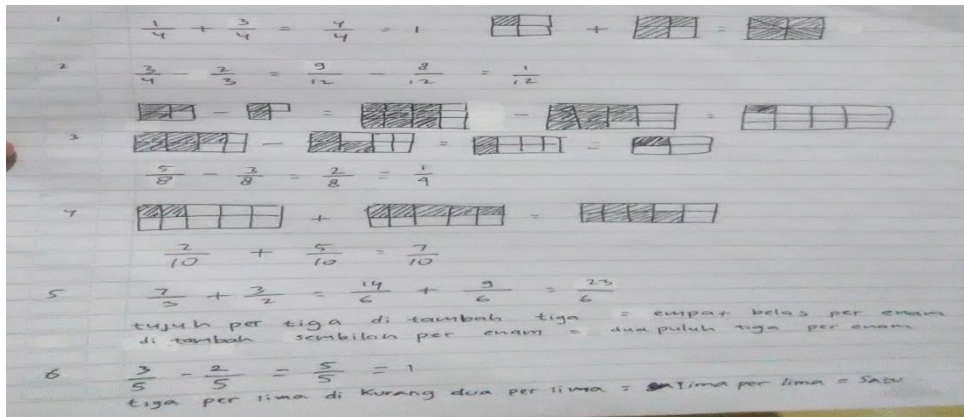 1 1/4 + 3/4 = 4/4 = 1 + =
2 3/4 - 2/3 = 9/12 - 8/12 = 1/12
- = - =
3 - = =
5/8 - 3/8 = 2/8 = 1/4
4 + =
2/10 + 5/10 = 7/10
5 7/3 + 3/2 = 14/6 + 9/6 = 23/6
tujuh per tiga di tambah tiga = empat belas per enam
di tambah sembilan per enam = dua puluh tiga per enam
6 3/5 - 2/5 = 5/5 = 1
tiga per lima di kurang dua per lima = lima per lima = satu